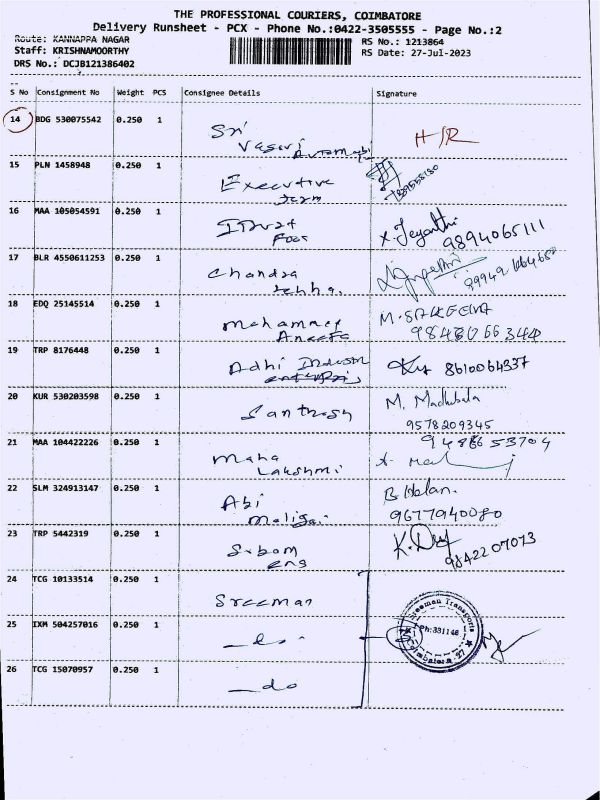 THE PROFESSIONAL COURIERS, COIMBATORE
Delivery Runsheet - PCX - Phone No.:0422-3505555 - Page No.:2
Route: KANNAPPA NAGAR
RS No.: 1213864
Staff: KRISHNAMOORTHY
RS Date: 27-Jul-2023
DRS No.: DCJB121386402
S No Consignment No Weight PCS Consignee Details Signature
14 BDG 530075542 0.250 1 Sri H/R
15 PLN 1458948 0.250 1 Executive
16 MAA 105054591 0.250 1
9894065111
17 BLR 4550611253 0.250 1 Chandra
18 EDQ 25145514 0.250 1 Mohammed M. SAKEENA
19 TRP 8176448 0.250 1 Adhi 8610064337
20 KUR 530203598 0.250 1 Santhosh M. Madhubala
9578209345
21 MAA 104422226 0.250 1 Maha 9488653704
Lakshmi
22 SLM 324913147 0.250 1 Abi B Helan.
Maligai 9677940080
23 TRP 5442319 0.250 1 9842207073
24 TCG 10133514 0.250 1 Sreeman
Sreeman Transports
25 IXM 504257016 0.250 1 do Ph:331146
Coimbatore
26 TCG 15070957 0.250 1 do